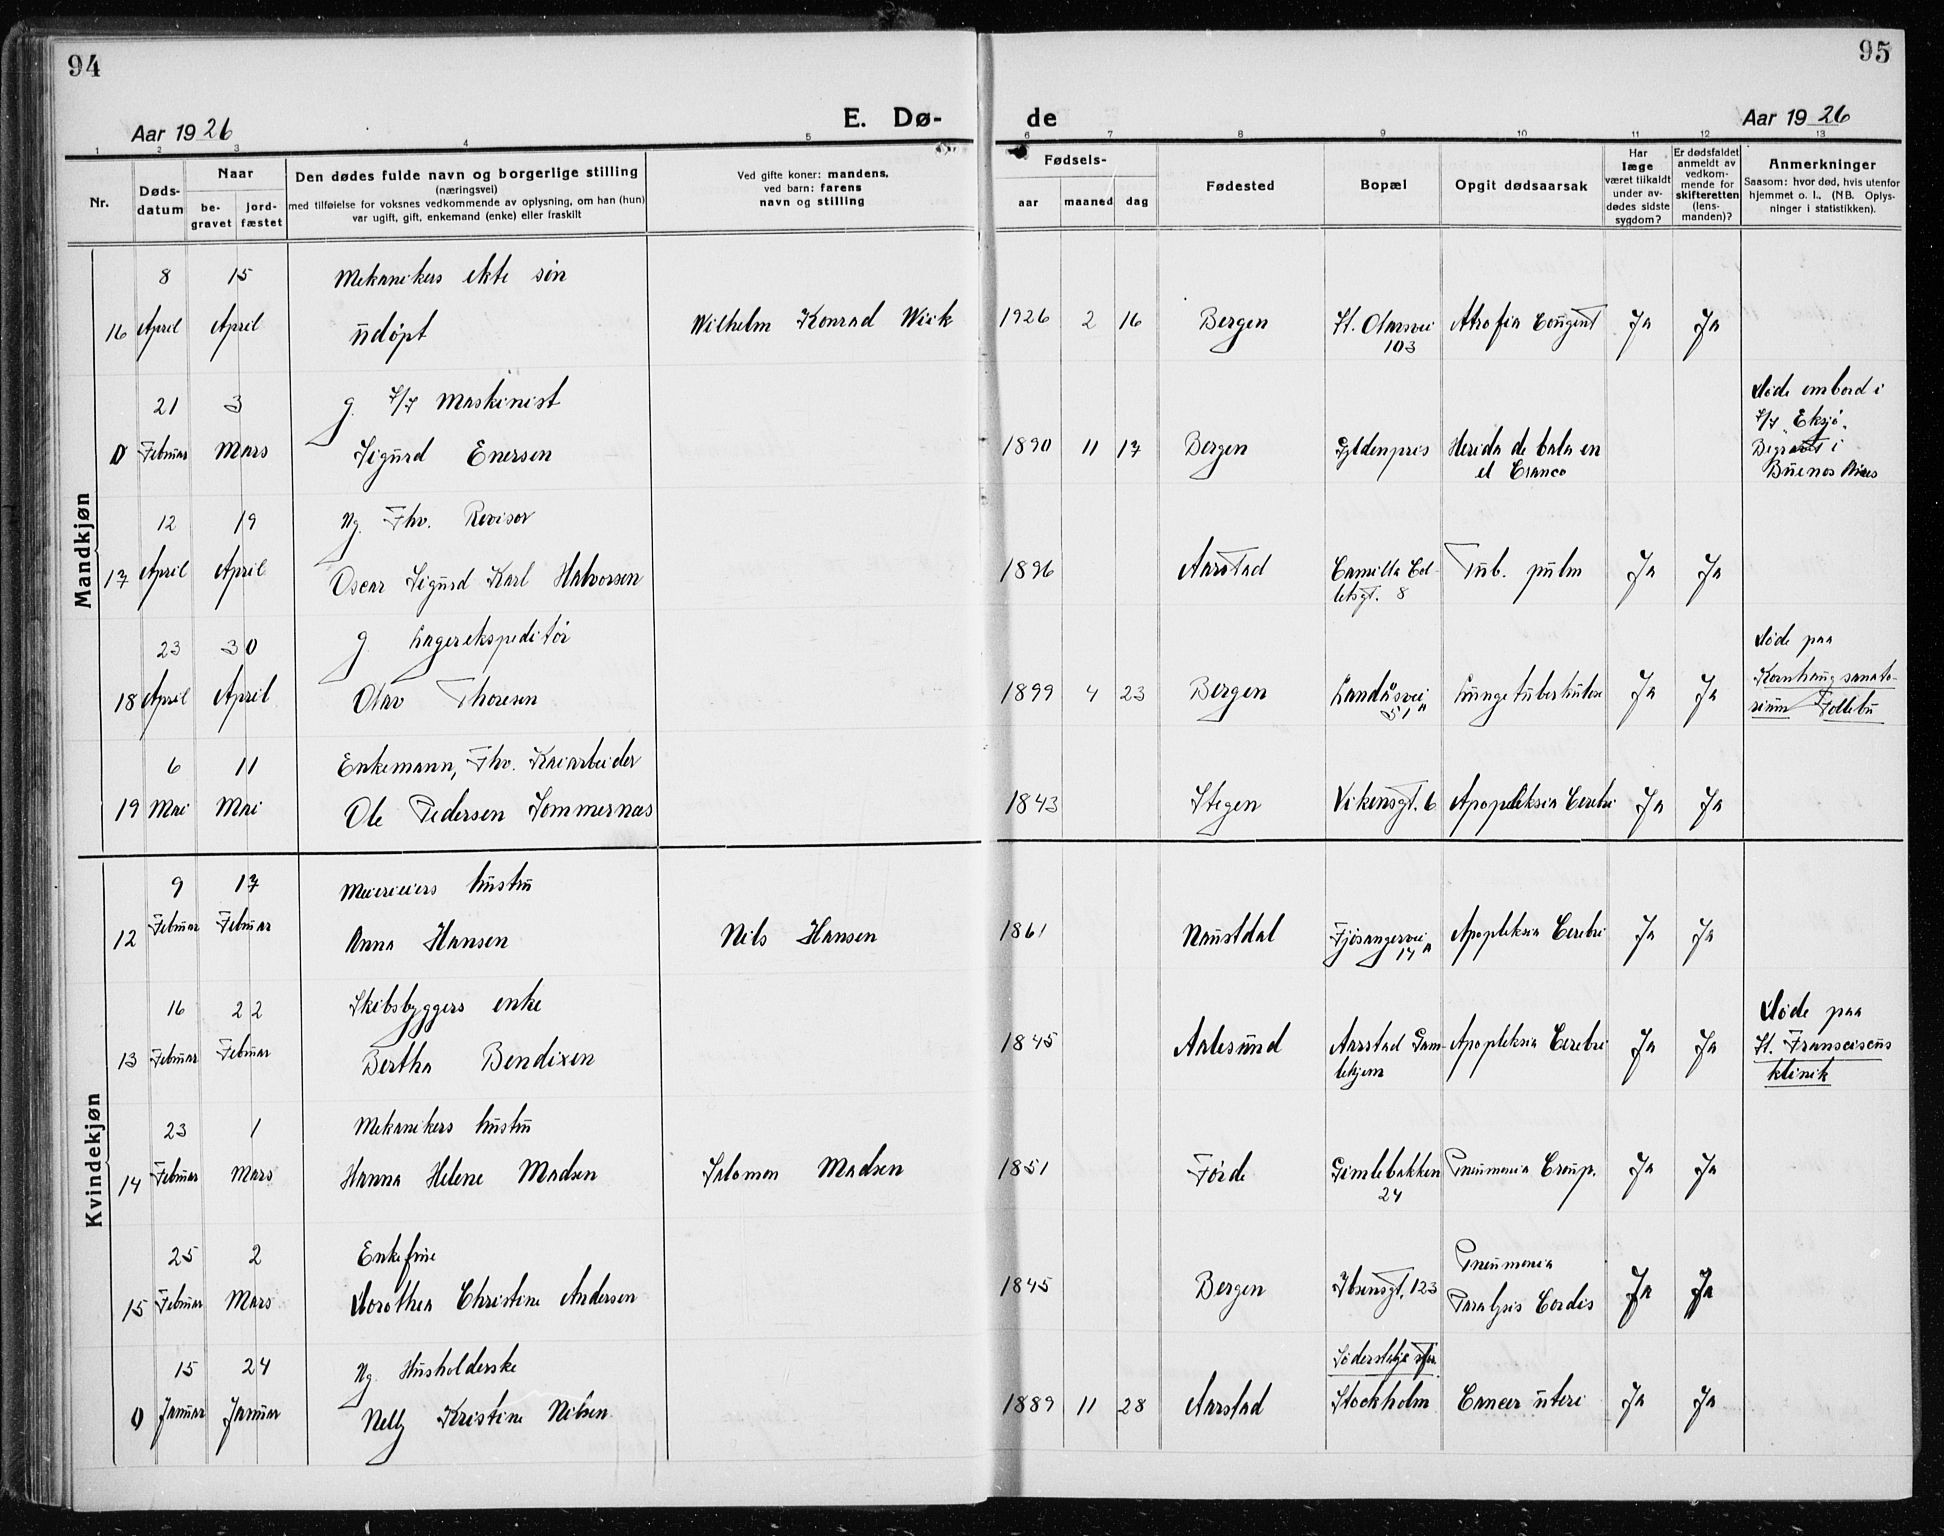 94
95
Aar 1926
E. Dø-
de
Aar 1926
1 2 3 4 5 6 7 8 9 10 11 12 13
Nr.
Døds-
datum
Naar
be-
gravet
jord-
fæstet
Den dødes fulde navn og borgerlige stilling
(næringsvei)
med tilføielse for voksnes vedkommende av oplysning, om han (hun)
var ugift, gift, enkemand (enke) eller fraskilt
Ved gifte koner: mandens,
ved barn: farens
navn og stilling
Fødsels-
aar maaned dag
Fødested
Bopæl
Opgit dødsaarsak
Har
læge
været tilkaldt
under av-
dødes sidste
sygdom?
Er dødsfaldet
anmeldt av
vedkom-
mende for
skifteretten
(lens-
manden)?
Anmerkninger
Saasom: hvor død, hvis utenfor
hjemmet o. l.. (NB. Oplys-
ninger i statistikken).
Mandkjøn
8 15 Mekanikers ekte søn
16 April April udøpt Wilhelm Konrad Wiik 1926 2 16 Bergen St. Olavsvei Atrofia Congent Ja Ja
103
21 3 g. S/S Maskinist
0 Februar Mars Sigurd Enersen 1890 11 17 Bergen Gyldenpris Herida de bala en
el Craneo
Døde ombord i
S/S "Eksjø"
Begravet i
Buenos Aires
12 19 Ug. Fhv. Revisor
17 April April Oscar Sigurd Karl Halvorsen 1896 Aarstad Camilla Col- Tub. pulm Ja Ja
letsgt. 8
23 30 g. Lagerekspeditør
18 April April Olav Thoresen 1899 4 23 Bergen Landåsvei Lungetuberkulose Ja Ja
51 A
Døde paa
Kornhaug sanato-
rium Follebu
6 11 Enkemann, Fhv. Kaiarbeider
19 Mai Mai Ole Pedersen Sommernæs 1843 Stegen Vikensgt. 6 Apopleksia Cerebri Ja Ja
Kvindekjøn
9 17 Meiereiers hustru
12 Februar Februar Anna Hansen Nils Hansen 1861 Naustdal Fjøsangervei Apopleksia Cerebri Ja Ja
17 A
16 22 Skibsbyggers enke
13 Februar Februar Bertha Bendixen 1845 Aalesund Aarstad Gam- Apopleksia Cerebri Ja Ja
lehjem
Døde paa
St. Franciscus
klinik
23 1 Mekanikers hustru
14 Februar Mars Hanna Helene Madsen Salomon Madsen 1851 Førde Gimlebakken Pneumonia Croup. Ja Ja
24
25 2 Enkefrue
15 Februar Mars Dorothea Christine Andersen 1845 Bergen Ibsensgt. 123 Pneumonia
Paralysis Cordis Ja Ja
15 24 Ug. Husholderske
0 Januar Januar Nelly Kristine Nilsen 1889 11 28 Aarstad
Stockholm Cancer uteri Ja Ja